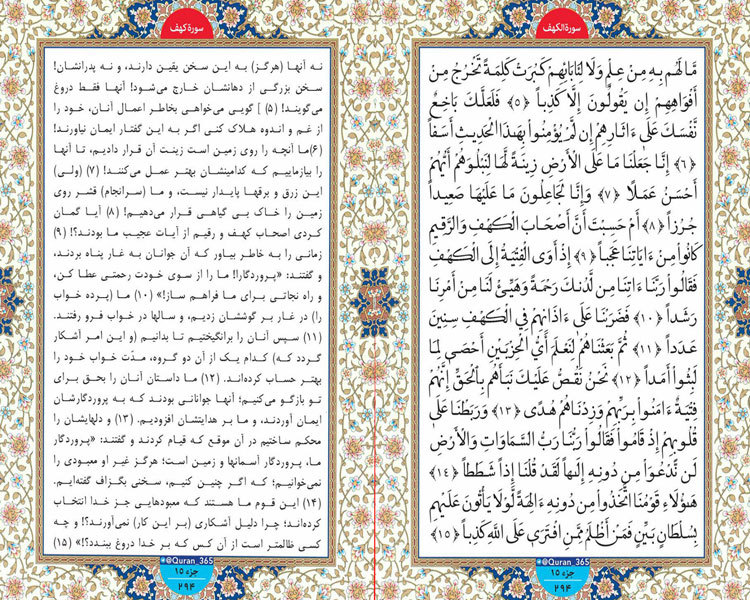 سورة الكهف
مَّا لَهُم بِهِ مِنْ عِلْمٍ وَلَا لِآبَائِهِمْ كَبُرَتْ كَلِمَةً تَخْرُجُ مِنْ
أَفْوَاهِهِمْ إِن يَقُولُونَ إِلَّا كَذِباً ﴿٥﴾ فَلَعَلَّكَ بَاخِعٌ
نَّفْسَكَ عَلَى ءَاثَارِهِمْ إِن لَّمْ يُؤْمِنُوا بِهَذَا الْحَدِيثِ أَسَفاً
﴿٦﴾ إِنَّا جَعَلْنَا مَا عَلَى الْأَرْضِ زِينَةً لَّهَا لِنَبْلُوَهُمْ أَيُّهُمْ
أَحْسَنُ عَمَلًا ﴿٧﴾ وَإِنَّا لَجَاعِلُونَ مَا عَلَيْهَا صَعِيداً
جُرُزاً ﴿٨﴾ أَمْ حَسِبْتَ أَنَّ أَصْحَابَ الْكَهْفِ وَالرَّقِيمِ
كَانُوا مِنْ ءَايَاتِنَا عَجَباً ﴿٩﴾ إِذْ أَوَى الْفِتْيَةُ إِلَى الْكَهْفِ
فَقَالُوا رَبَّنَا ءَاتِنَا مِن لَّدُنكَ رَحْمَةً وَهَيِّئْ لَنَا مِنْ أَمْرِنَا
رَشَداً ﴿١٠﴾ فَضَرَبْنَا عَلَى ءَاذَانِهِمْ فِي الْكَهْفِ سِنِينَ
عَدَداً ﴿١١﴾ ثُمَّ بَعَثْنَاهُمْ لِنَعْلَمَ أَيُّ الْحِزْبَيْنِ أَحْصَى لِمَا
لَبِثُوا أَمَداً ﴿١٢﴾ نَحْنُ نَقُصُّ عَلَيْكَ نَبَأَهُم بِالْحَقِّ إِنَّهُمْ
فِتْيَةٌ ءَامَنُوا بِرَبِّهِمْ وَزِدْنَاهُمْ هُدًى ﴿١٣﴾ وَرَبَطْنَا عَلَى
قُلُوبِهِمْ إِذْ قَامُوا فَقَالُوا رَبُّنَا رَبُّ السَّمَاوَاتِ وَالْأَرْضِ
لَن نَّدْعُوَا مِن دُونِهِ إِلَهاً لَقَدْ قُلْنَا إِذاً شَطَطاً ﴿١٤﴾
هَؤُلَاءِ قَوْمُنَا اتَّخَذُوا مِن دُونِهِ ءَالِهَةً لَّوْلَا يَأْتُونَ عَلَيْهِم
بِسُلْطَانٍ بَيِّنٍ فَمَنْ أَظْلَمُ مِمَّنِ افْتَرَى عَلَى اللَّهِ كَذِباً ﴿١٥﴾
@Quran_365
جزء ١٥
٢٩٤
سورة کهف
نه آنها (هرگز) به این سخن یقین دارند، و نه پدرانشان!
سخن بزرگی از دهانشان خارج می‌شود! آنها فقط دروغ
می‌گویند! (۵) ] گویی می‌خواهی بخاطر اعمال آنان، خود را
از غم و اندوه هلاک کنی اگر به این گفتار ایمان نیاورند!
(۶)ما آنچه را روی زمین است زینت آن قرار دادیم، تا آنها
را بیازماییم که کدامینشان بهتر عمل می‌کنند! (۷) (ولی)
این زرق و برقها پایدار نیست، و ما (سرانجام) قشر روی
زمین را خاک بی گیاهی قرار می‌دهیم! (۸) آیا گمان
کردی اصحاب کهف و رقیم از آیات عجیب ما بودند؟! (۹)
زمانی را به خاطر بیاور که آن جوانان به غار پناه بردند،
و گفتند: «پروردگارا! ما را از سوی خودت رحمتی عطا کن،
و راه نجاتی برای ما فراهم ساز!» (۱۰) ما (پرده خواب
را) در غار بر گوششان زدیم، و سالها در خواب فرو رفتند.
(۱۱) سپس آنان را برانگیختیم تا بدانیم (و این امر آشکار
گردد که) کدام یک از آن دو گروه، مدّت خواب خود را
بهتر حساب کرده‌اند. (۱۲) ما داستان آنان را بحق برای
تو بازگو می‌کنیم؛ آنها جوانانی بودند که به پروردگارشان
ایمان آوردند، و ما بر هدایتشان افزودیم. (۱۳) و دلهایشان را
محکم ساختیم در آن موقع که قیام کردند و گفتند: «پروردگار
ما، پروردگار آسمانها و زمین است؛ هرگز غیر او معبودی را
نمی‌خوانیم؛ که اگر چنین کنیم، سخنی بگزاف گفته‌ایم.
(۱۴) این قوم ما هستند که معبودهایی جز خدا انتخاب
کرده‌اند؛ چرا دلیل آشکاری (بر این کار) نمی‌آورند؟! و چه
کسی ظالمتر است از آن کس که بر خدا دروغ ببندد؟!» (۱۵)
@Quran_365
جزء ۱۵
۲۹۴